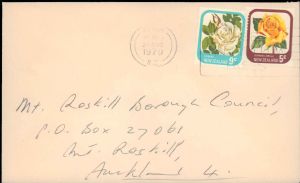 1979
9c
NEW ZEALAND
5c
NEW ZEALAND
Mt. Roskill Borough Council,
P.O. Box 27061
Mt. Roskill,
Auckland 4.